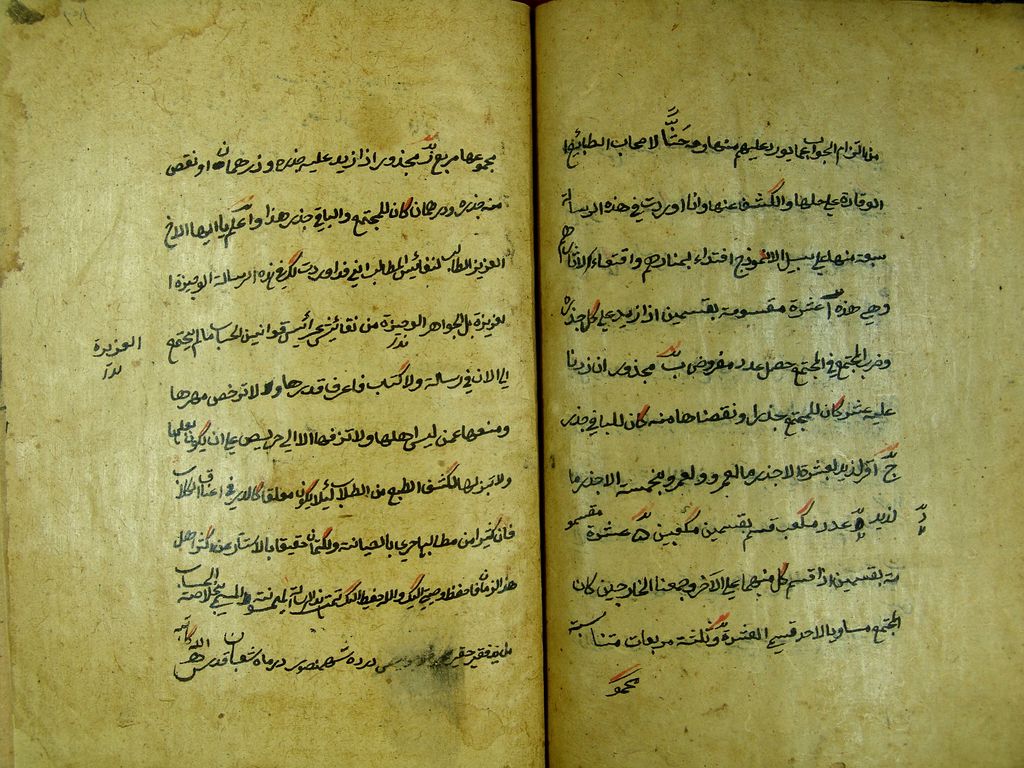 من التزام الجواب عما يورد عليهم منها وحثًّا لاصحاب الطبائع
الوقادة على حلها والكشف عنها وانا اوردت في هذه الرسالة
سبعة منها على سبيل الانموذج اقتداء بمنارهم واقتفاء لاثارهم
وهي هذه آ عشرة مقسومة بقسمين اذا زيد على كل جذره
وضرب المجتمع في المجتمع حصل عدد مفروض ب مجذور ان زدنا
عليه عشرة كان للمجتمع جذر او نقصناها منه كان للباقي جذر
ج اقر لزيد بعشرة الا جذر ما لعمرو ولعمرو بخمسة الا جذر ما
لزيد د عدد مكعب قسم بقسمين مكعبين ه عشرة مقسو
مة بقسمين اذا قسم كل منهما على الاخر وجمعنا الخارجين كان
المجتمع مساويا لاحد قسمي العشرة و ثلثة مربعات متناسبة
مجمو
مجموعها مربع ز مجذور اذا زيد عليه جذره ودرهمان او نقص
منه جذره ودرهمان كان للمجتمع والباقي جذر هذا واعلم يا ايها الاخ
العزيز الطالب لنفائس المطالب اني قد اوردت لك في هذه الرسالة الوجيزة ا
لعزيزة بل الجواهر الوجيزة من نفائس عرائس قوانين الحساب ما لم يجتمع
العزيزة
الى الان في رسالة ولا كتاب فاعرف قدرها ولا ترخص مهرها
وامنعها عمن ليس اهلها ولا تزفها الا الى حريص على ان يكون بعلها
ولا تبذلها لكثيف الطبع من الطلاب لئلا يكون معلقا كالدر في اعناق الكلاب
فان كثيرا من مطالبها حري بالصيانة والكتمان حقيق بالاستتار عن اكثر اهل
هذا الزمان فاحفظ وصيتي اليك والله حفيظ عليك تمت هذه الرسالة المسماة بخلاصة الحساب
من يد فقير حقير در ده شهر در ماه شعبان